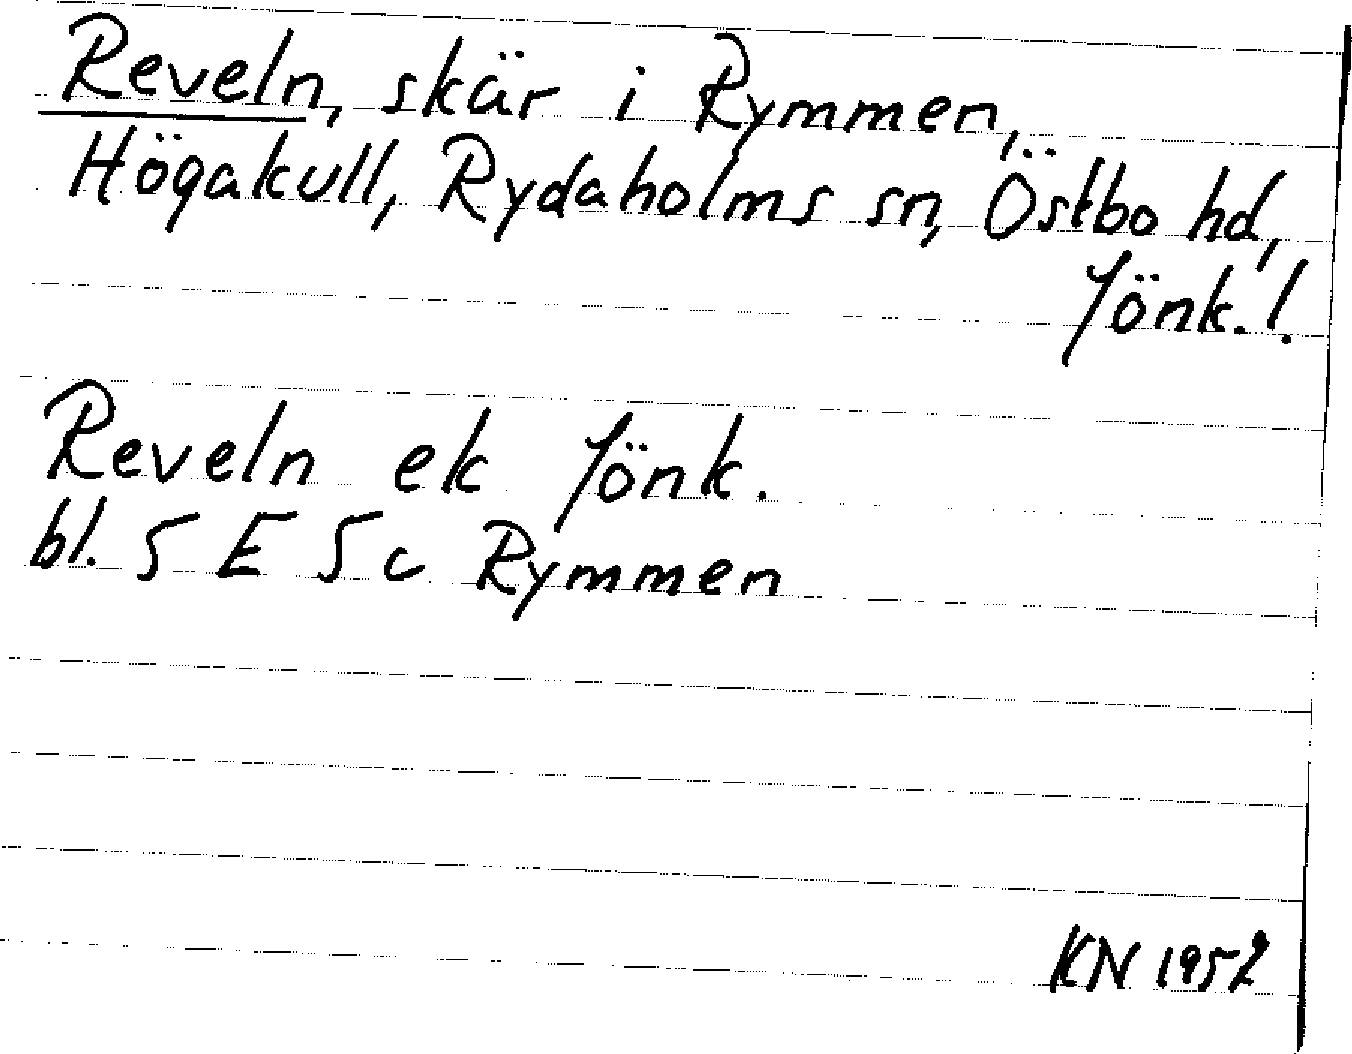 Reveln, skär i Rymmen,
Högakull, Rydaholms sn, Östbo hd,
Jönk.!
Reveln ek Jönk.
bl. 5 E 5 c Rymmen
KN 1952